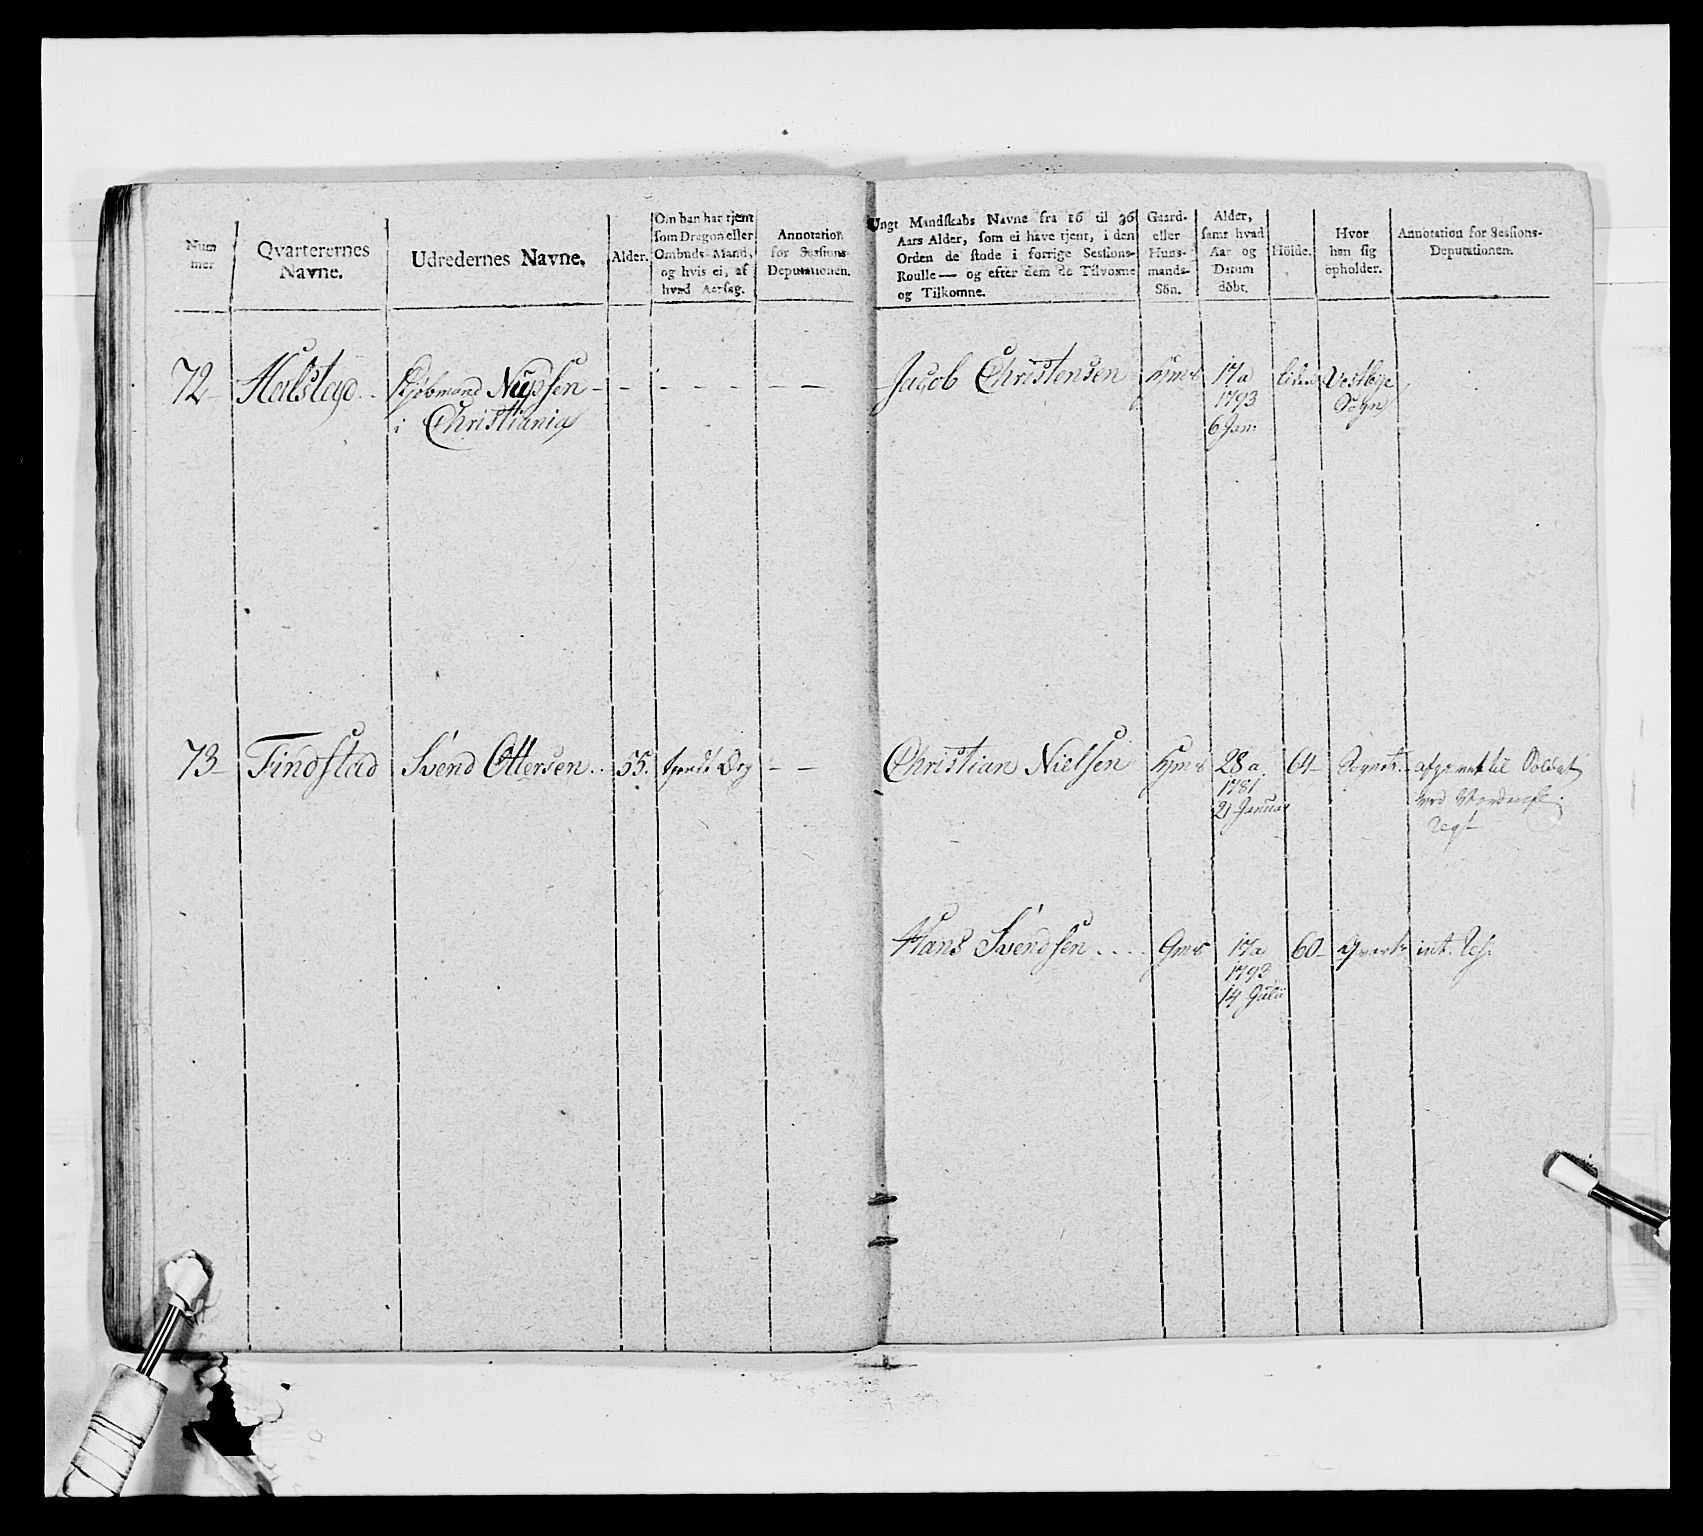 Num
mer
Qvarterernes
Navne.
Udredernes Navne.
Alder.
Om han har tjent
som Dragon eller
Ombuds-Mand,
og hvis ei, af
hvad Aarsag.
Annotation
for Sessions-
Deputationen.
Ungt Mandskabs Navne fra 16 til 36
Aars Alder, som ei have tjent, i den
Orden de stode i forrige Sessions-
Roulle — og efter dem de Tilvoxne
og Tilkomne.
Gaard-
eller
Huus-
mands-
Sön.
Alder,
samt hvad
Aar og
Datum
döbt.
Höide.
Hvor
han sig
opholder.
Annotation for Sessions-
Deputationen.
72 - Halstad Kjøbmand - - - - - - - Jacob Christensen 17 a Vestbye
i Christiania 1793 Sogn
6 Jan:
73 - Findstad Svend Ottersen 55. tjendt - - Christian Nielsen 28 a 64 - til Soldat
1781
21 Januar
Regt
Hans Svendsen . . . . 17 a 60 -
1793
14 Julii